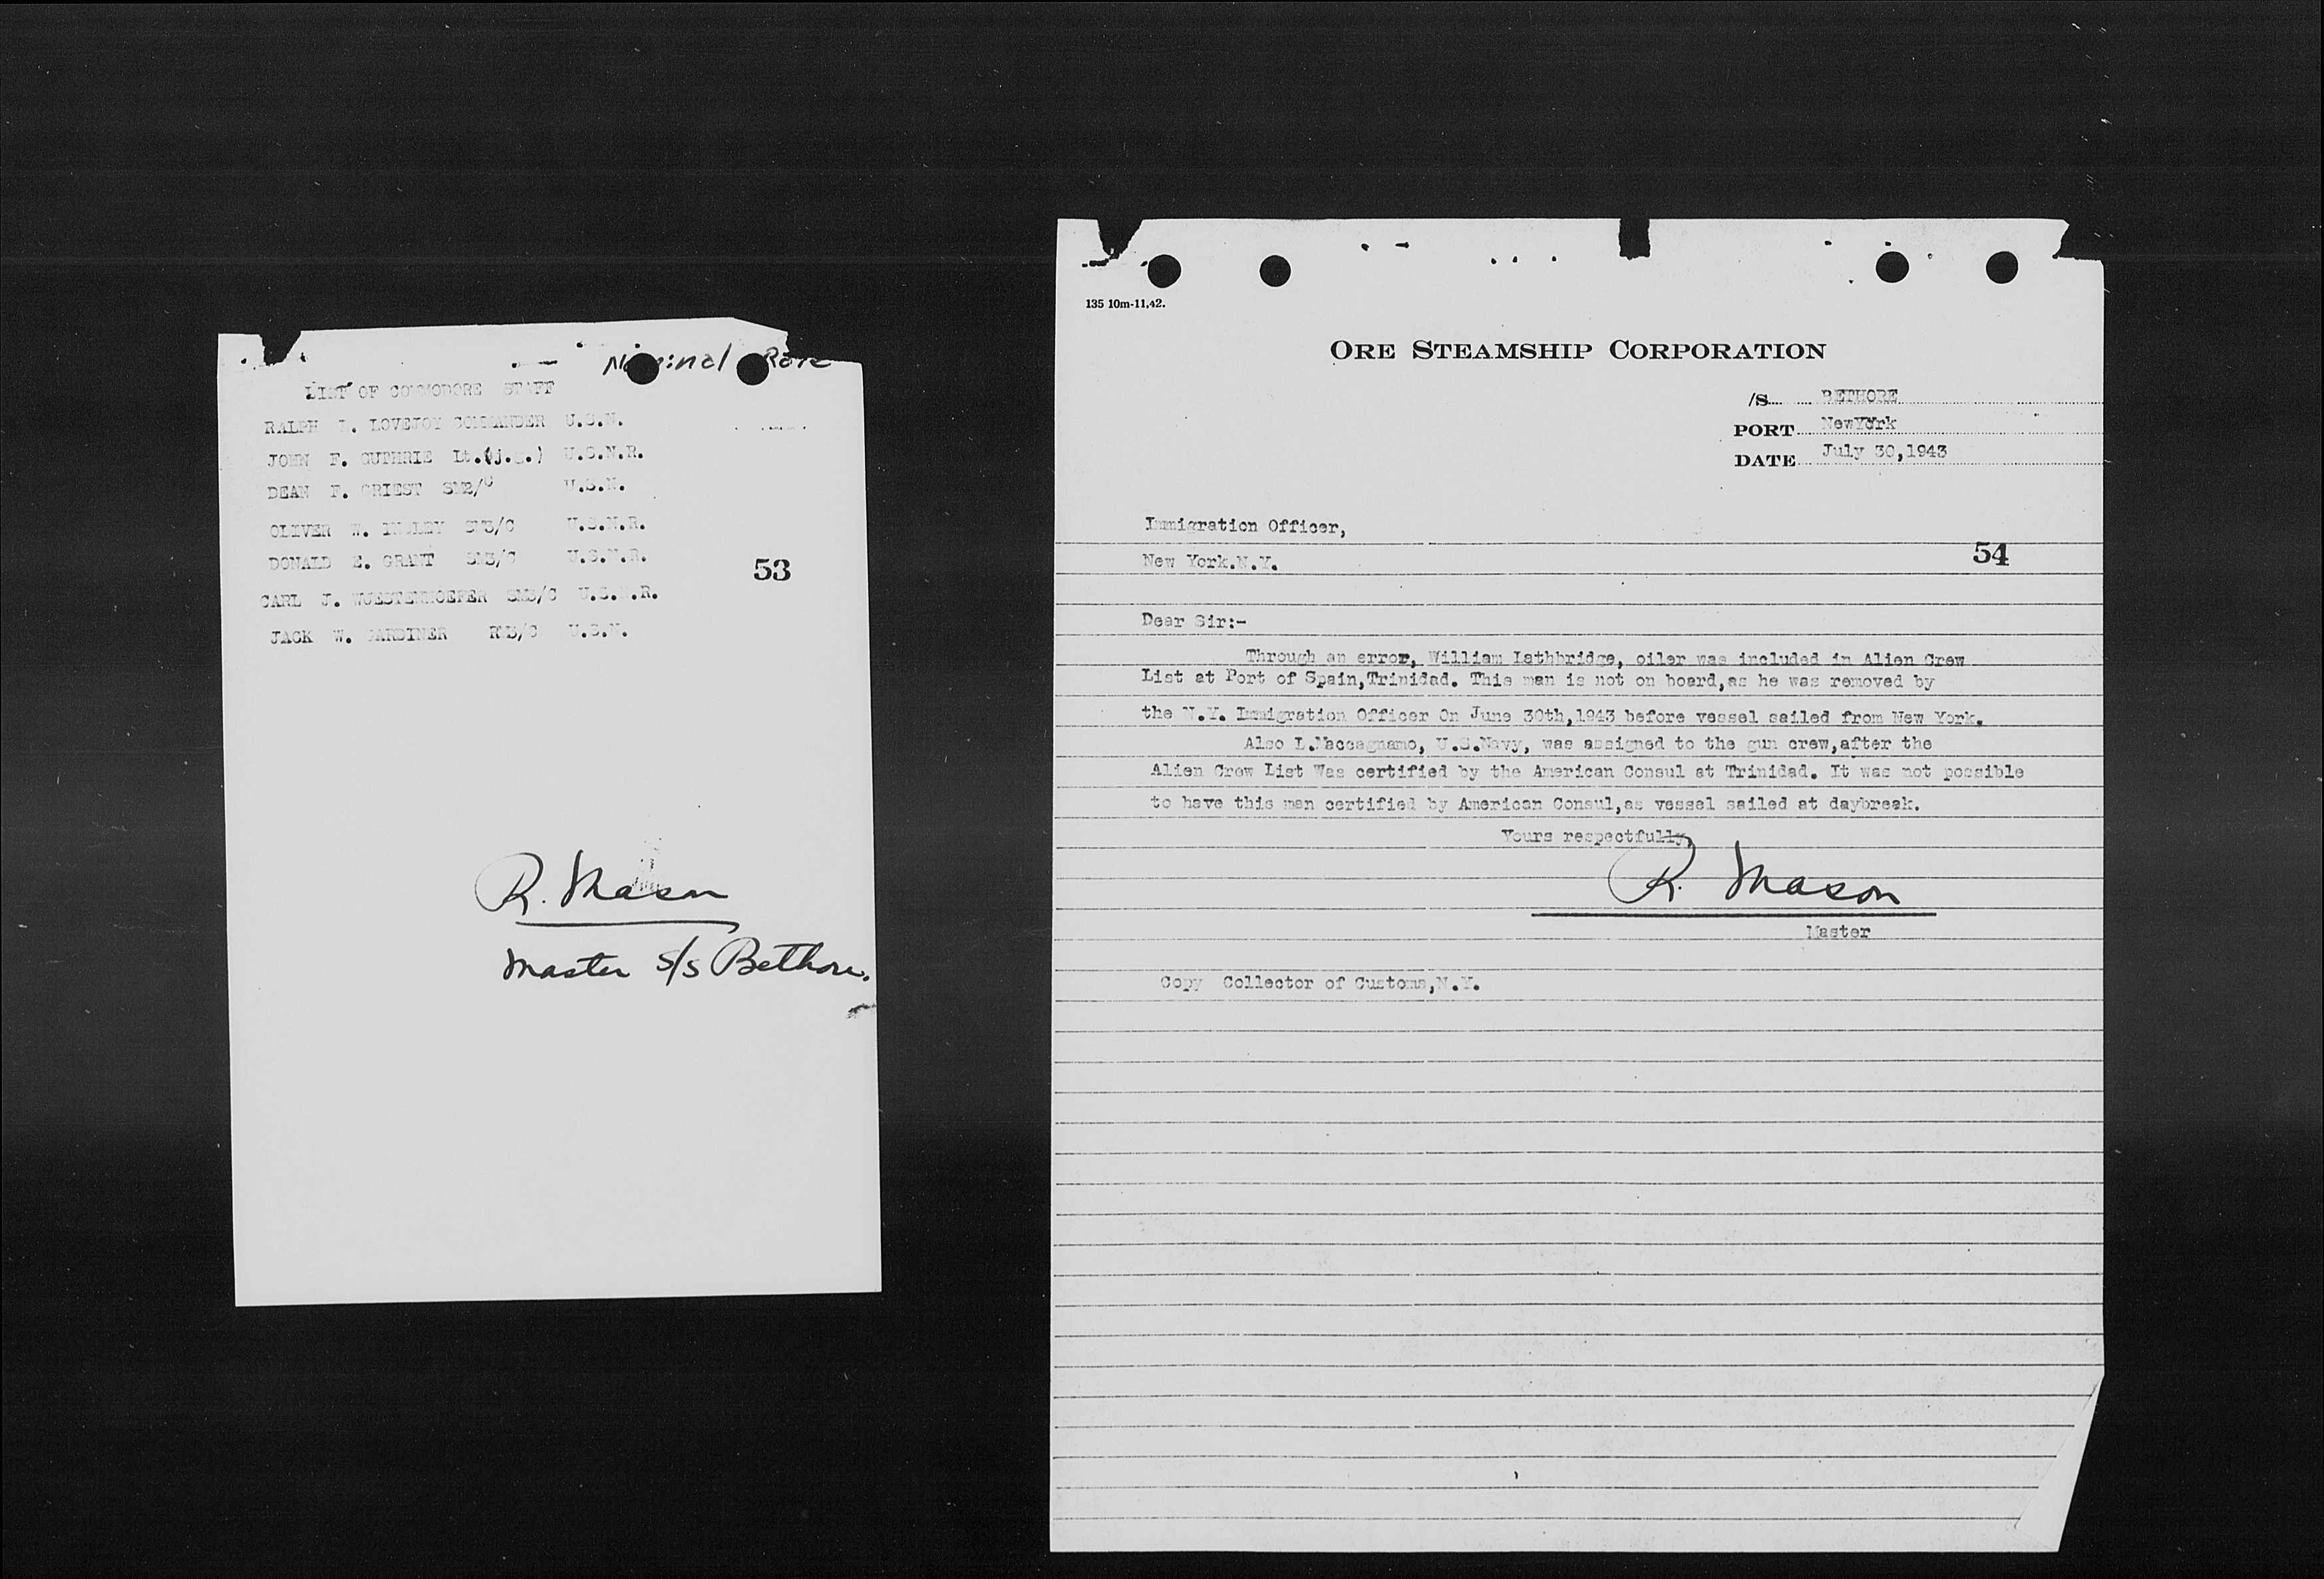 LIST OF COMMODORE STAFF
RALPH L. LOVEJOY COMMANDER U.S.N.
JOHN F. GUTHRIE Lt.(j.g.) U.S.N.R.
DEAN F. GRIEST SM2/C U.S.N.
OLIVER W. SM3/C U.S.N.R.
DONALD E. GRANT SM3/C U.S.N.R.
53
CARL J. WUESTENHOEFER SM3/C U.S.N.R.
JACK W. GARDINER RM3/C U.S.N.
R. Mason
Master S/S Bethore.
135 10m-11,42.
ORE STEAMSHIP CORPORATION
/S BETHORE
PORT NewYork
DATE July 30,1943
Immigration Officer,
54
New York.N.Y.
Dear Sir:-
Through an error, William Lathbridge, oiler was included in Alien Crew
List at Port of Spain,Trinidad. This man is not on board,as he was removed by
the N.Y. Immigration Officer On June 30th,1943 before vessel sailed from New York.
Also L.Maccagnamo, U.S.Navy, was assigned to the gun crew,after the
Alien Crew List Was certified by the American Consul at Trinidad. It was not possible
to have this man certified by American Consul,as vessel sailed at daybreak.
Yours respectfully,
R. Mason
Master
Copy Collector of Customs,N.Y.